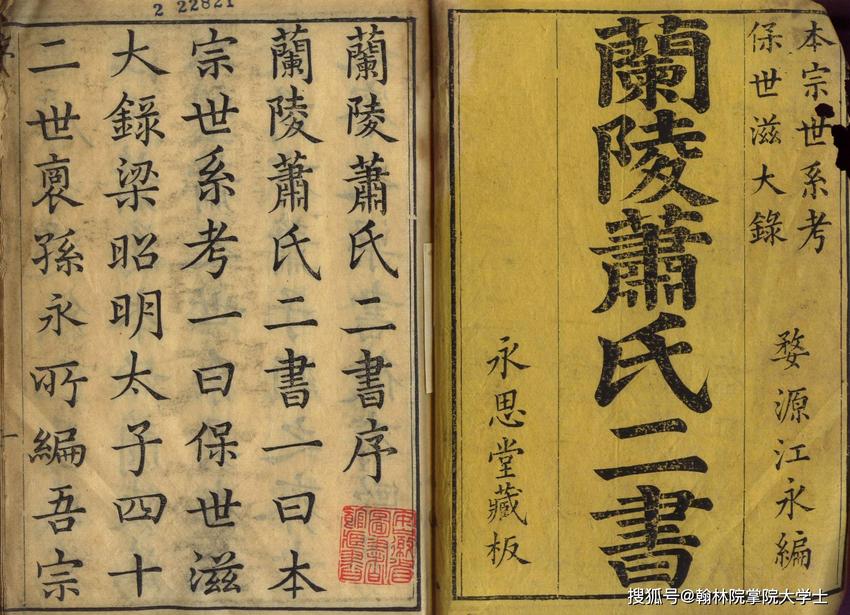 本宗世系考
保世滋大錄
婺源江永編
蘭陵蕭氏二書
永思堂藏板
2 22821
蘭陵蕭氏二書序
蘭陵蕭氏二書一曰本
宗世系考一曰保世滋
大錄梁昭明太子四十
二世裔孫永所編吾宗
搜狐号@翰林院掌院大学士